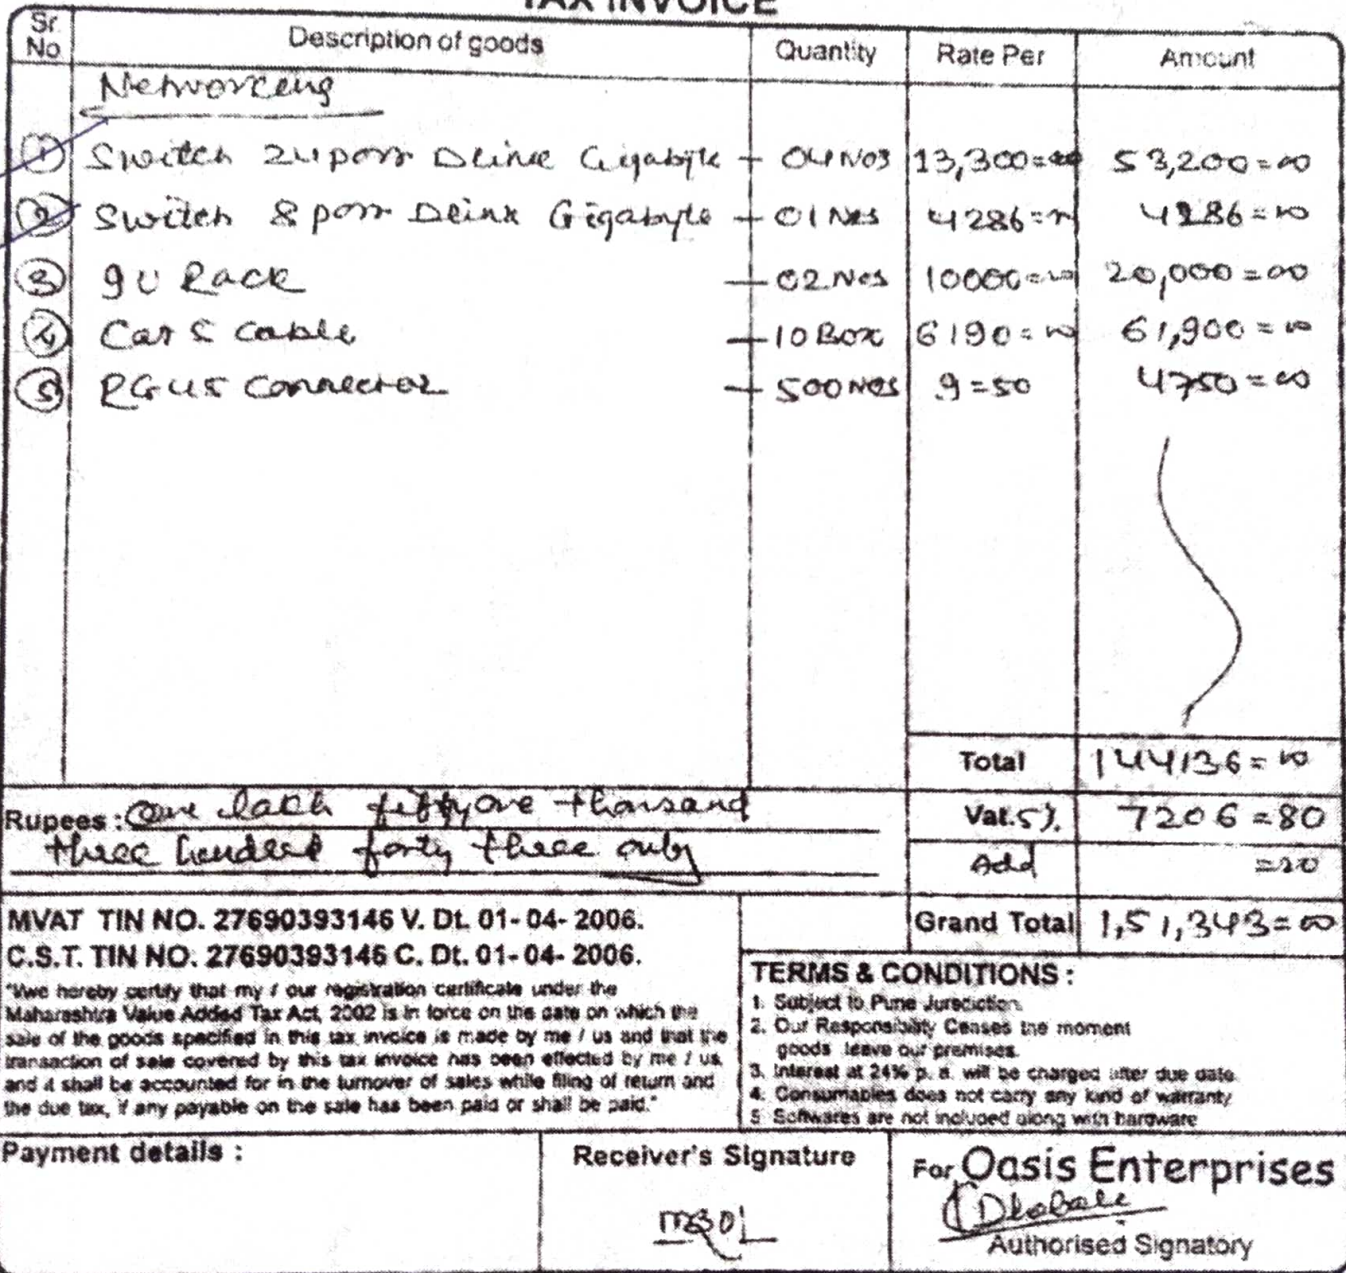 TAX INVOICE
Sr. No | Description of goods | Quantity | Rate Per | Amount
Networceng
1 Switch 24 porr Dlink Gigabyte - 04 Nos 13,300=00 53,200=00
2 Switch 8 porr Dlink Gigabyte - 01 Nos 4286=00 4286=00
3 9U Rack - 02 Nos 10000=00 20,000=00
4 Cat 5 Cable - 10 Box 6190=00 61,900=00
5 RG45 Connector - 500 Nos 9=50 4750=00
Total 144136=00
Rupees : One lakh fiftyone thousand
three hundred forty three only
Vat.5%. 7206=80
Add =20
Grand Total 1,51,343=00
MVAT TIN NO. 27690393146 V. Dt. 01-04-2006.
C.S.T. TIN NO. 27690393146 C. Dt. 01-04-2006.
"I/we hereby certify that my / our registration certificate under the
Maharashtra Value Added Tax Act, 2002 is in force on the date on which the
sale of the goods specified in this tax invoice is made by me / us and that the
transaction of sale covered by this tax invoice has been effected by me / us
and it shall be accounted for in the turnover of sales while filing of return and
the due tax, if any payable on the sale has been paid or shall be paid."
TERMS & CONDITIONS :
1. Subject to Pune Juresdiction
2. Our Responsibility Ceases the moment
goods leave our premises.
3. Interest at 24% p. a. will be charged after due date.
4. Consumables does not carry any kind of warranty
5. Softwares are not included along with hardware
Payment details :
Receiver's Signature
For Oasis Enterprises
Dhobale
Authorised Signatory